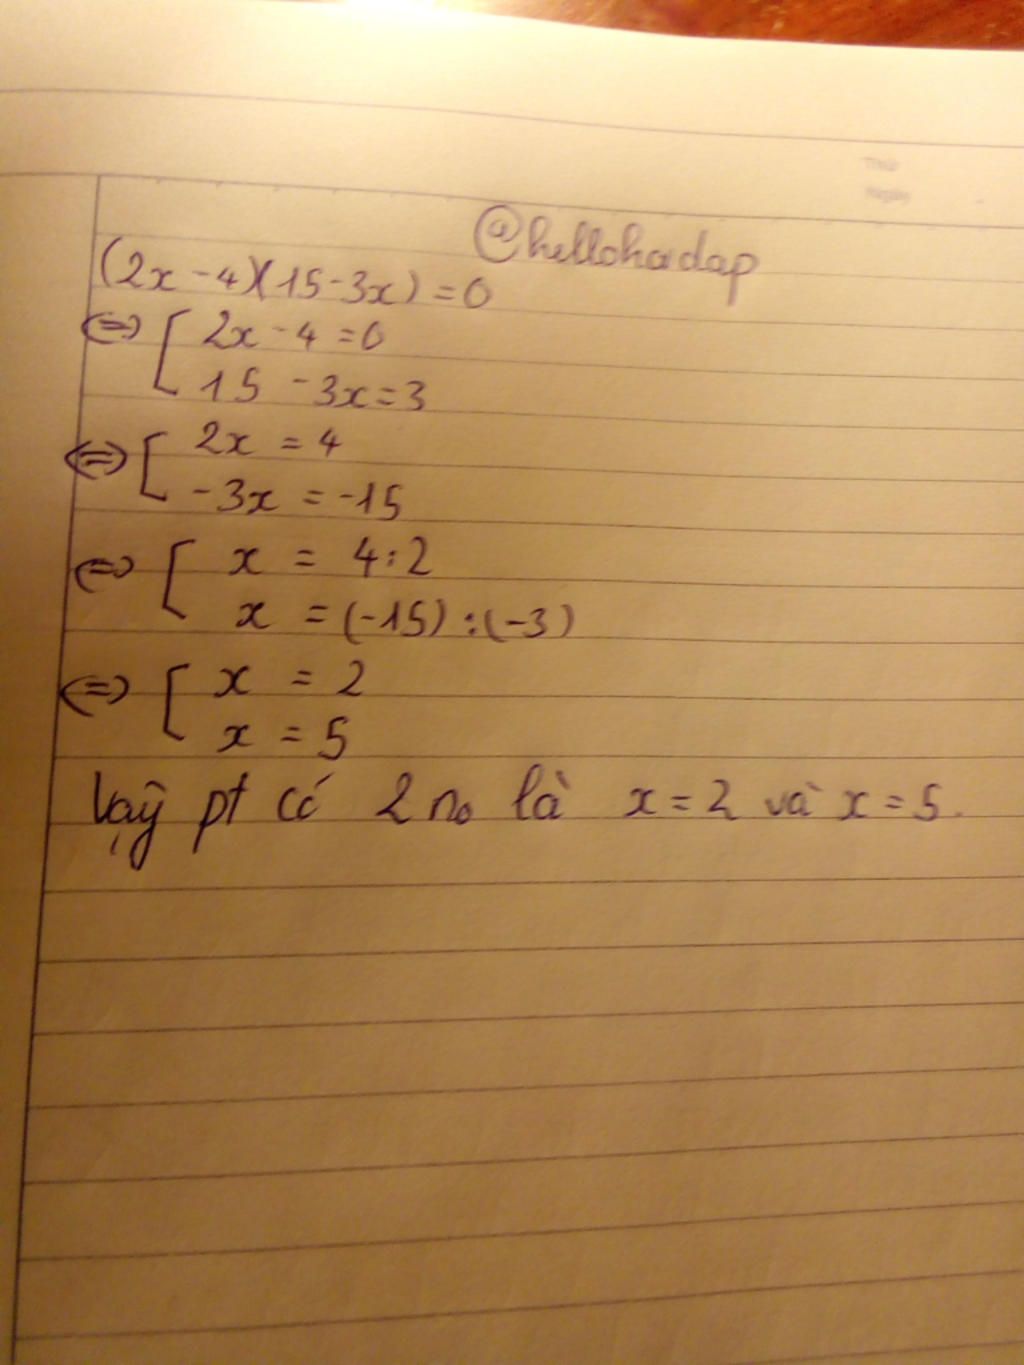 Thứ
Ngày
@hellohoidap
(2x - 4)(15 - 3x) = 0
<=> [ 2x - 4 = 0
15 - 3x = 3
<=> [ 2x = 4
-3x = -15
<=> [ x = 4:2
x = (-15) : (-3)
<=> [ x = 2
x = 5
Vậy pt có 2 no là x = 2 và x = 5.